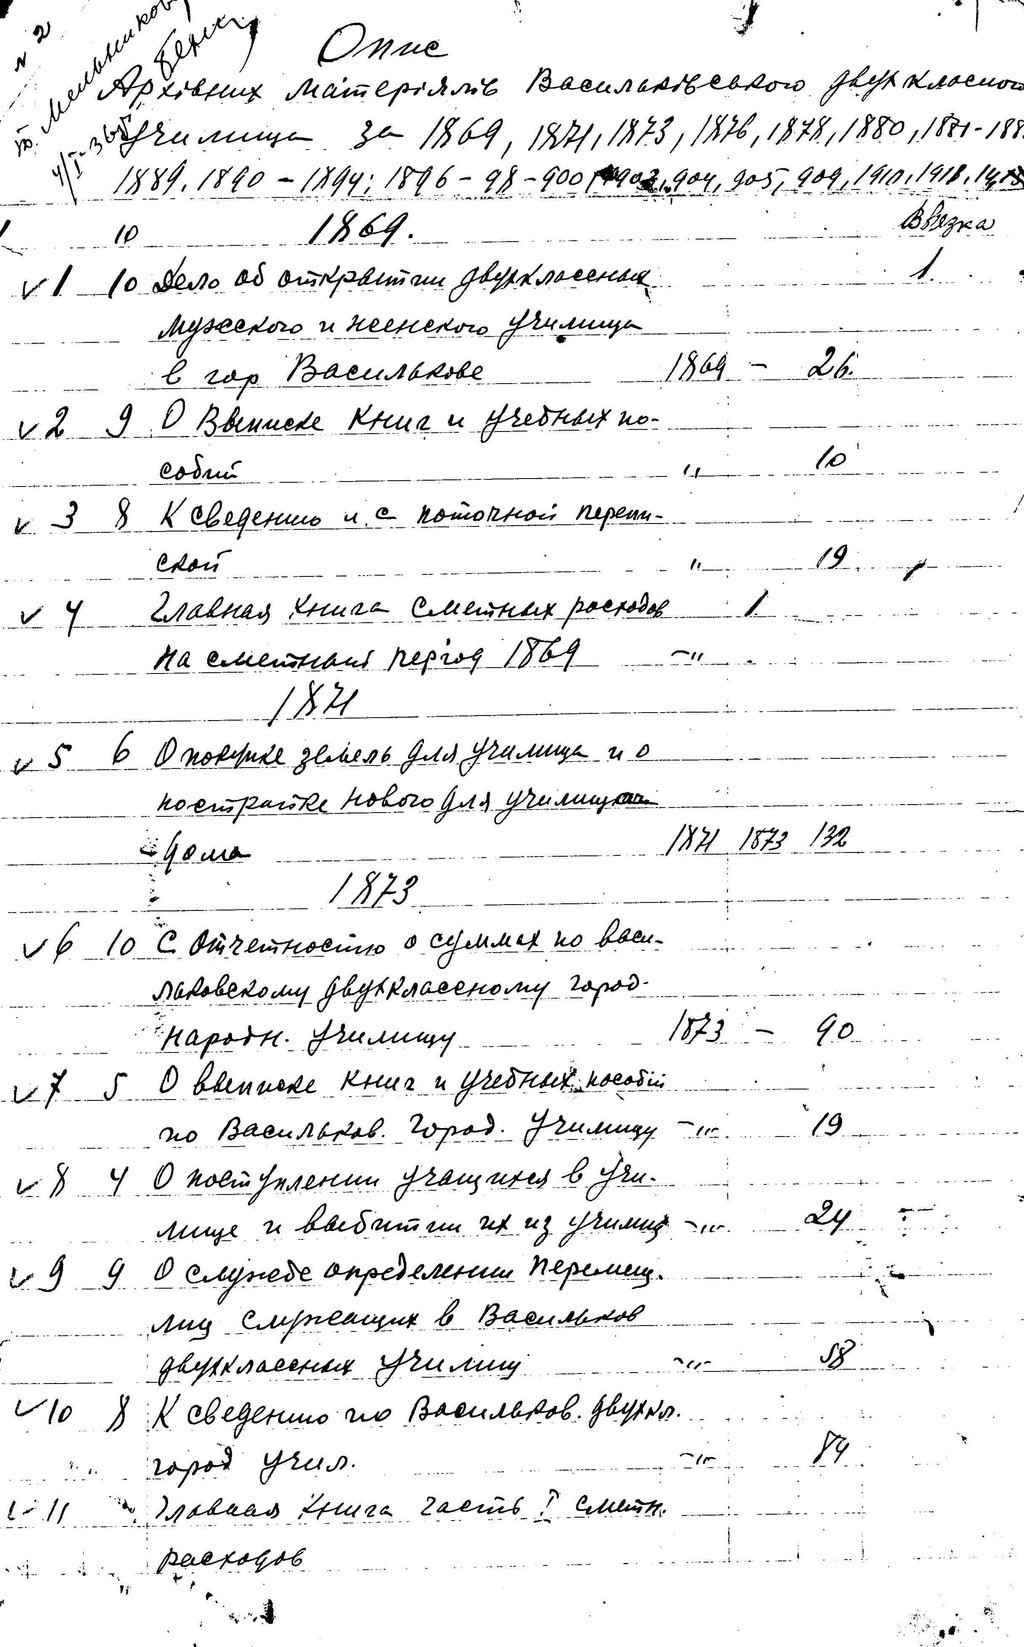 N 2
Мельников
Опис
Архівних матеріялів Васильківського двухкласного
училища за 1869, 1871, 1873, 1876, 1878, 1880, 1881-188
1889, 1890 – 1894; 1896 – 98 – 900, 1902, 904, 905, 909, 1910, 1918,
10 1869. Ввязка
1 10 Дело об открытии двухклассных 1
мужского и женского училища
в гор Василькове 1869 – 26.
2 9 О Ввыписке книг и учебных по-
собий " 10
3 8 К сведению и с поточной перепи-
ской " 19
4 Главная книга сметных расходов 1
на сметный період 1869 –"
1871
5 6 О покупке земель для училища и о
построике нового для училища
дома 1871 1873 132
1873
6 10 С отчетностию о суммах по васи-
льковскому двухклассному город-
народн. училищу 1873 – 90
7 5 О ввыписке книг и учебных пособий
по Васильков. город. училищу –"– 19
8 4 О поступлении учащихся в учи-
лище и выбитии их из училищ –"– 24
9 9 О службе определении перемещ.
лиц служащих в Васильков
двухклассных училищ –"– 58
10 8 К сведению по Васильков. двухкл.
город учил. –"– 84
11 Главная книга часть I сметн.
расходов